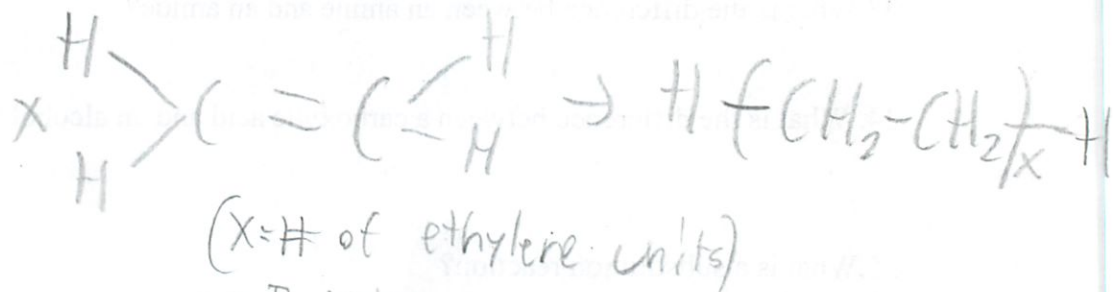 x H H C = C H H → H-(CH₂-CH₂)ₓ-H
(x=# of ethylene units)